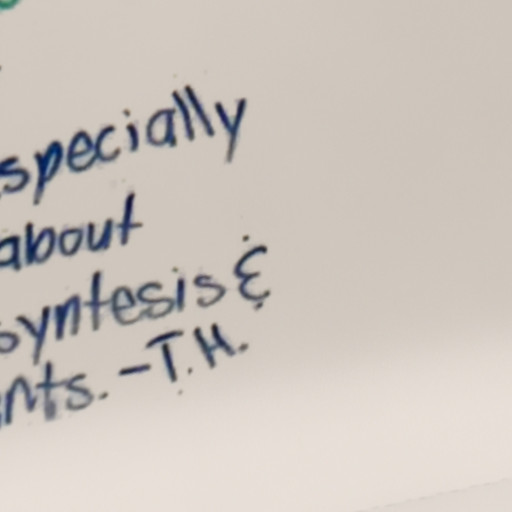 specially
about
syntesis &
nts. -T.H.